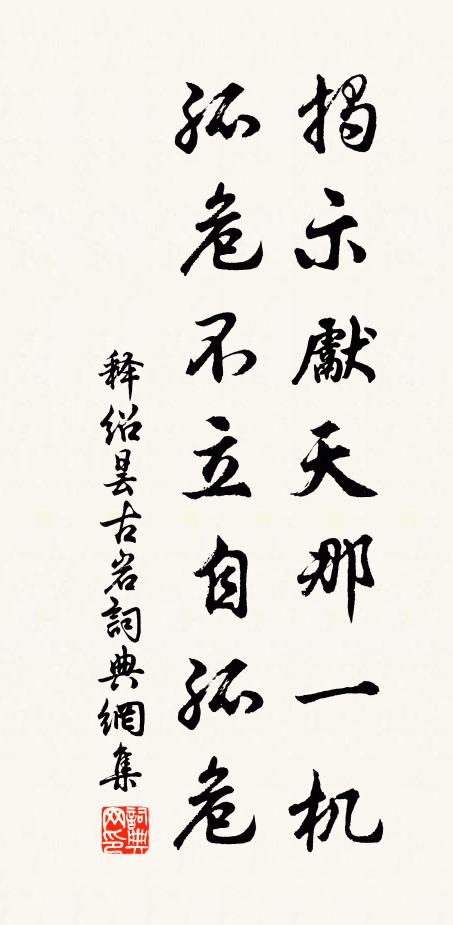 揭示獻天那一机
孤危不立自孤危
释绍昙古岩詞典網集
詞典網印